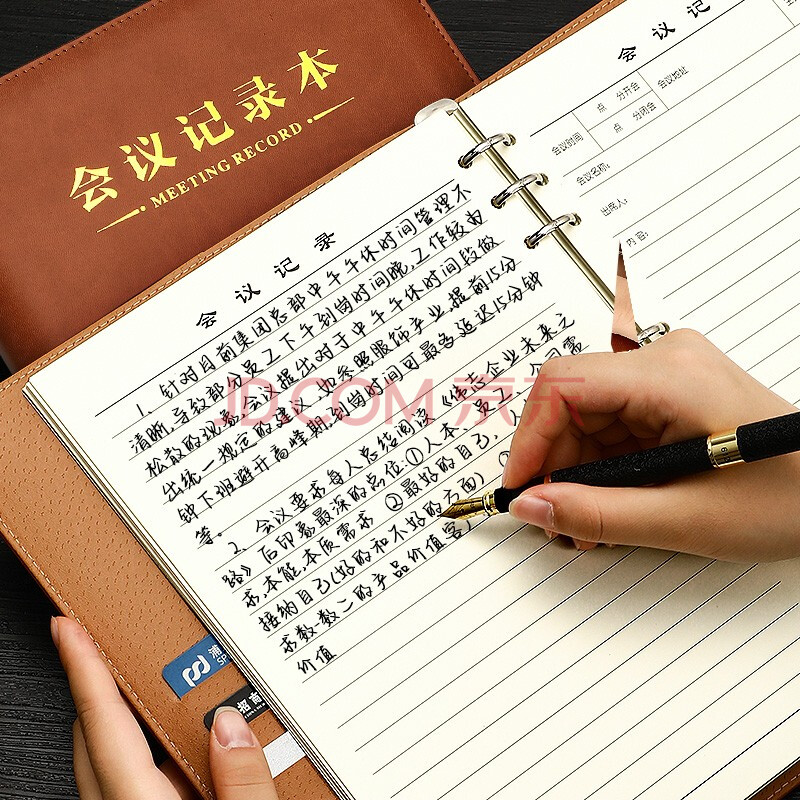 会议记录本
MEETING RECORD
会议记录
1、针对目前集团总部中午午休时间管理不
清晰,导致部份员工下午到岗时间晚,工作较为
松散的现象,会议提出对于中午午休时间段做
出统一规定的建议,也参照服饰产业,提前15分
钟下班避开高峰期,到岗时间可最多延迟15分钟
等。
2、会议要求每人总结阅读《伟志企业未来之
路》后印象最深的点位:①人本:员工、
求,本能,本质需求 ②最好的自己,
接纳自己(好的和不好的方面)
求数:数二的产品价值客户
价值
会议记
会议时间
点 分开会
点 分闭会
会议地址
会议名称:
出席人:
内容:
JD.COM 京东
浦
SP
招商